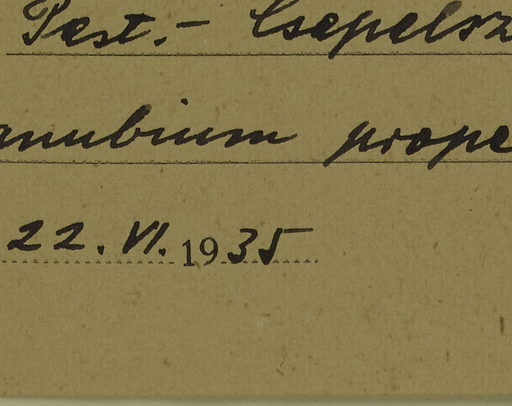 Pest.- Csepelsz
anubium prope
22. VI. 1935